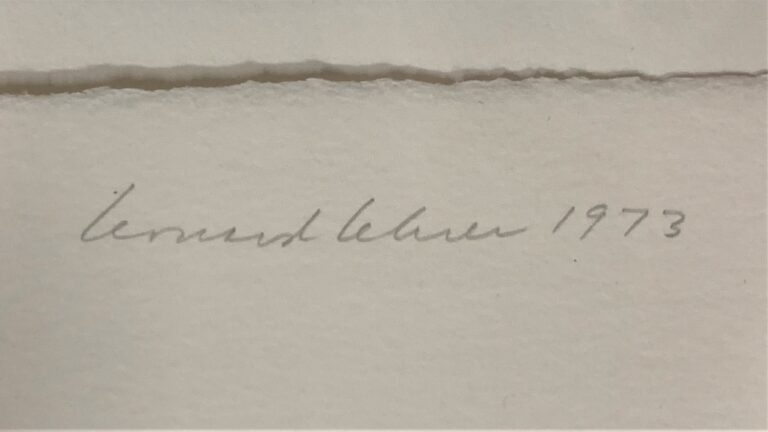 Leonard Lehrer 1973